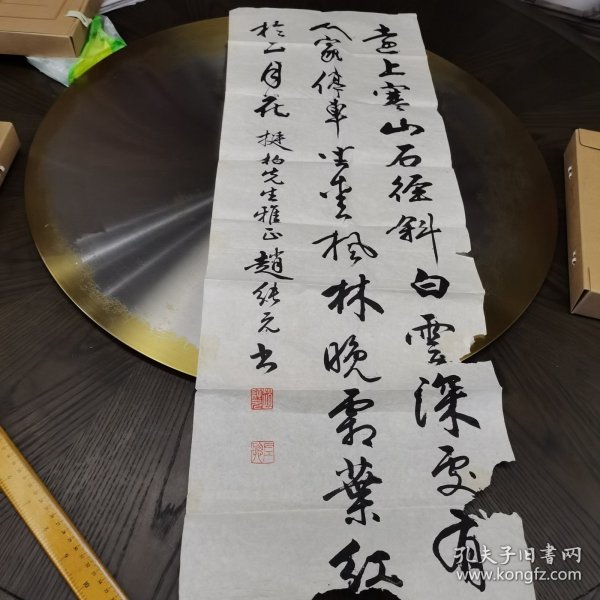 遠上寒山石徑斜白雲深處有
人家停車坐愛楓林晚霜葉紅
於二月花 挺柏先生雅正 趙繼元書
孔夫子旧書网
www.kongfz.com